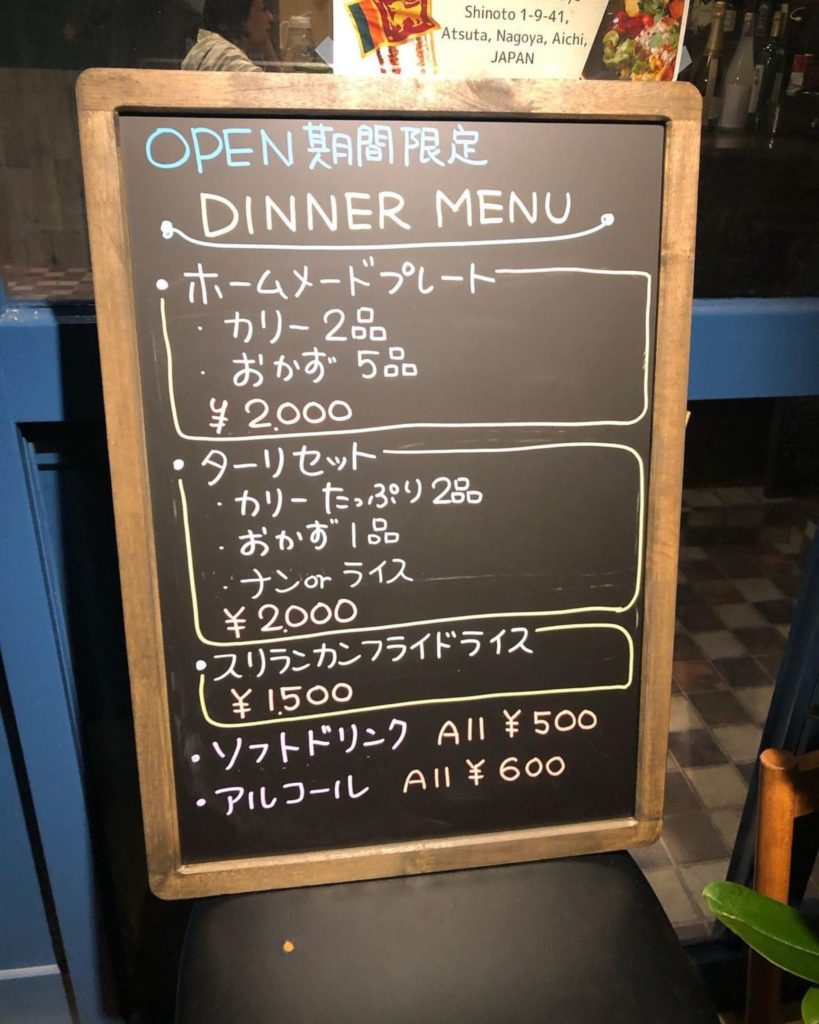 Shinoto 1-9-41,
Atsuta, Nagoya, Aichi,
JAPAN
OPEN 期間限定
DINNER MENU
・ホームメードプレート
・カリー 2品
・おかず 5品
¥2.000
・ターリセット
・カリー たっぷり 2品
・おかず 1品
・ナン or ライス
¥2.000
・スリランカンフライドライス
¥1.500
・ソフトドリンク All ¥500
・アルコール All ¥600